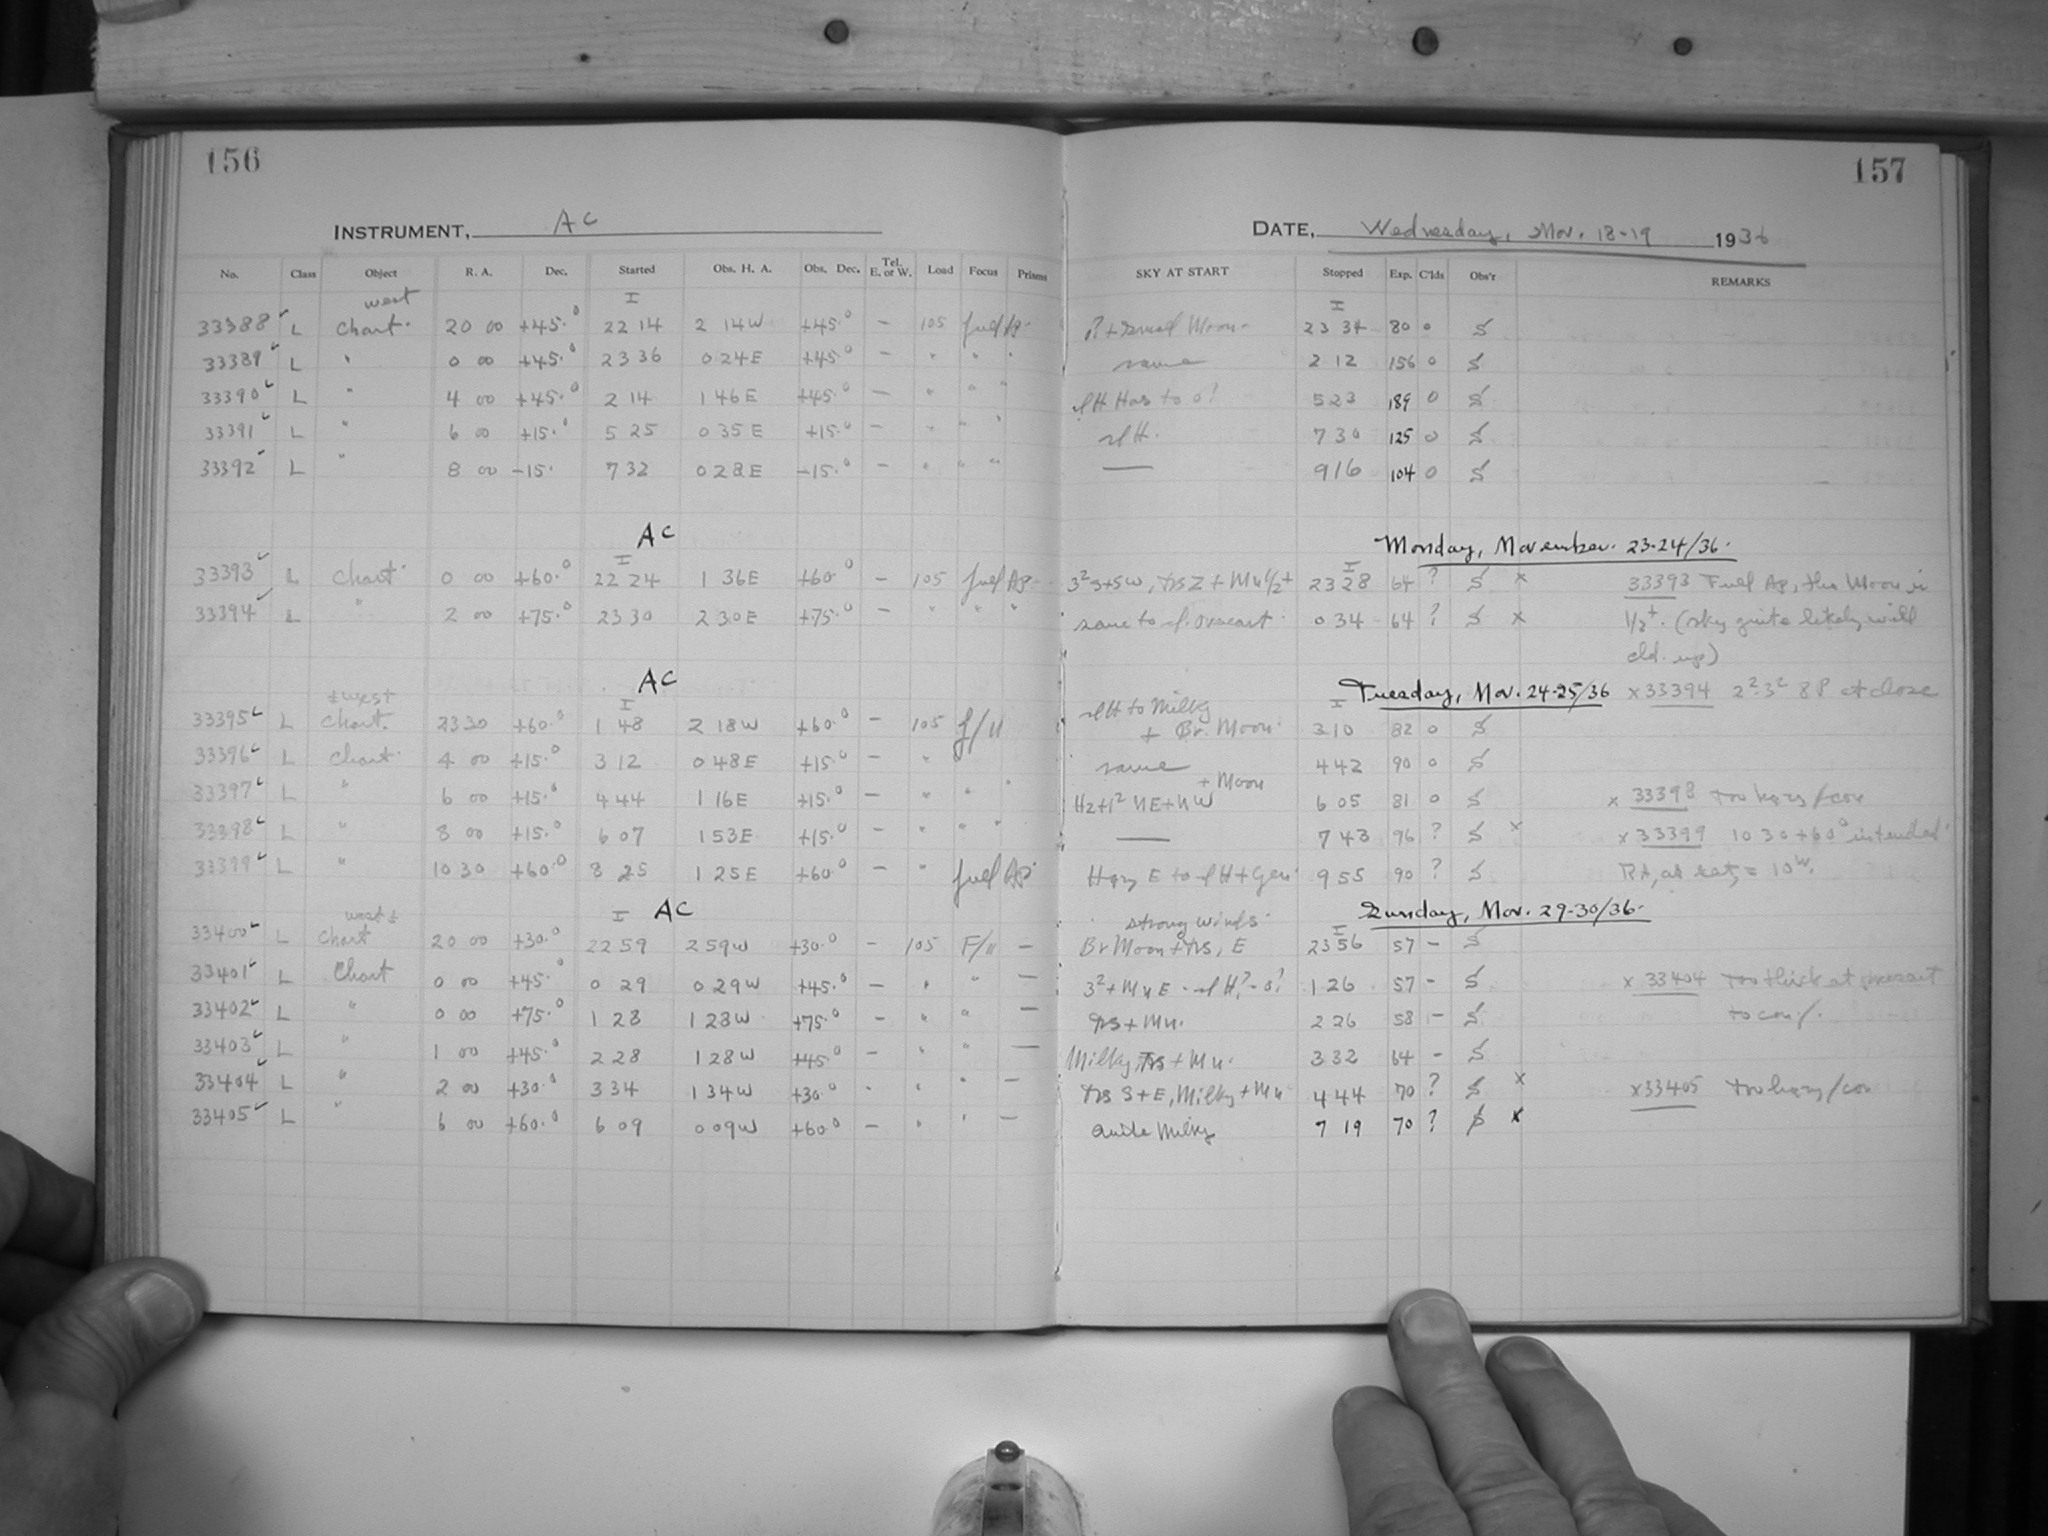 156
157
INSTRUMENT, AC
DATE, Wednesday, Nov. 18-19 1936
No. Class Object R. A. Dec. Started Obs. H. A. Obs. Dec. Tel. E. or W. Load Focus Prisms SKY AT START Stopped Exp. C'lds Obs'r REMARKS
west I I
33388 L Chart. 20 00 +45.0 22 14 2 14W +45.0 - 105 full Ap. Moon 23 34 80 0 S
33389 L " 0 00 +45.0 23 36 0 24E +45.0 - " " " same 2 12 156 0 S
33390 L " 4 00 +45.0 2 14 1 46E +45.0 - " " " 5 23 189 0 S
33391 L " 6 00 +15.0 5 25 0 35E +15.0 - " " " sl H. 7 30 125 0 S
33392 L " 8 00 -15. 7 32 0 28E -15.0 - " " " — 9 16 104 0 S
AC Monday, November. 23-24/36.
I I
33393 L Chart. 0 00 +60.0 22 24 1 36E +60.0 - 105 full Ap. 23 28 64 ? S x 33393 Full Ap, tho Moon is
33394 L " 2 00 +75.0 23 30 2 30E +75.0 - " " " same to sl. ovecast. 0 34 64 ? S x 1/2+. (sky quite likely will
cld. up)
AC Tuesday, Nov. 24-25/36 x33394 2²-3² 8P at close
± west I sl H to Milky I
33395 L Chart. 23 30 +60.0 1 48 2 18W +60.0 - 105 f/11 + Br. Moon. 3 10 82 0 S
33396 L Chart. 4 00 +15.0 3 12 0 48E +15.0 - " same 4 42 90 0 S
+ Moon
33397 L " 6 00 +15.0 4 44 1 16E +15.0 - " " " Hz+1² NE+NW 6 05 81 0 S x 33398 too hazy/con
33398 L " 8 00 +15.0 6 07 1 53E +15.0 - " " " — 7 43 96 ? S x x 33399 10 30 +60° intended.
33399 L " 10 30 +60.0 8 25 1 25E +60.0 - " full Ap. Hazy E to sl H + Gen. 9 55 90 ? S
AC Sunday, Nov. 29-30/36.
west ± I strong winds. I
33400 L Chart 20 00 +30.0 22 59 2 59W +30.0 - 105 F/11 - Br Moon + trs, E 23 56 57 - S
33401 L Chart 0 00 +45.0 0 29 0 29W +45.0 - " " - 3²+Mn E - sl H? - 0? 1 26 57 - S x 33404 too thick at present
33402 L " 0 00 +75.0 1 28 1 28W +75.0 - " " - trs + Mn. 2 26 58 - S to con/.
33403 L " 1 00 +45.0 2 28 1 28W +45.0 - " " - Milky, trs + Mn. 3 32 64 - S
33404 L " 2 00 +30.0 3 34 1 34W +30.0 - " " - trs S+E, Milky + Mn 4 44 70 ? S x x33405 too hazy/con
33405 L " 6 00 +60.0 6 09 0 09W +60.0 - " " - quite Milky 7 19 70 ? S x